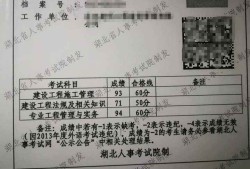 工作单位:
考试科目 成绩 合格线 备注
建设工程施工管理 93 60分
建设工程法规及相关知识 71 50分
专业工程管理与实务 94 60分
备注：成绩中若有-1表示缺考，-2表示违纪，-4表示违纪
(因2013年度外语考试违纪)，成绩为-2的考生请务必参看湖北人
事考试网"公示公告"中相关处理结果。
湖北人事考试院制
湖北省人事考试院